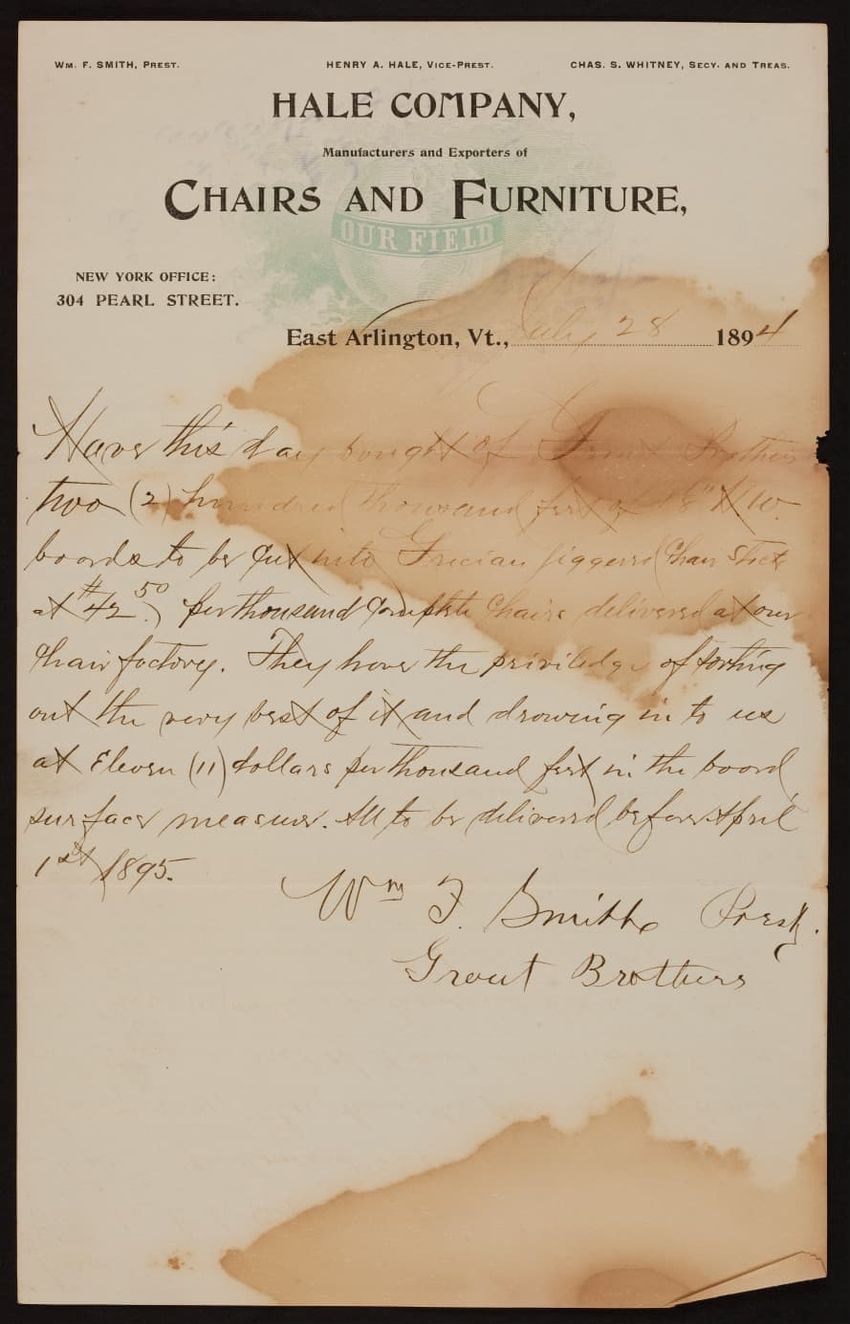 Wm. F. SMITH, PREST.
HENRY A. HALE, VICE-PREST.
CHAS. S. WHITNEY, SECY. AND TREAS.
HALE COMPANY,
Manufacturers and Exporters of
CHAIRS AND FURNITURE,
OUR FIELD
NEW YORK OFFICE:
304 PEARL STREET.
East Arlington, Vt., July 28 1894
Have this day bought of Grout Brothers
two (2) hundred thousand feet of
boards to be cut into Grecian jiggered Chair Stock
at $42.50 per thousand complete chairs delivered at our
Chair factory. They have the priviledge of sorting
out the very best of it and drawing in to us
at Eleven (11) dollars per thousand feet in the board
surface measure. All to be delivered before April
1st 1895.
Wm F. Smith Prest.
Grout Brothers